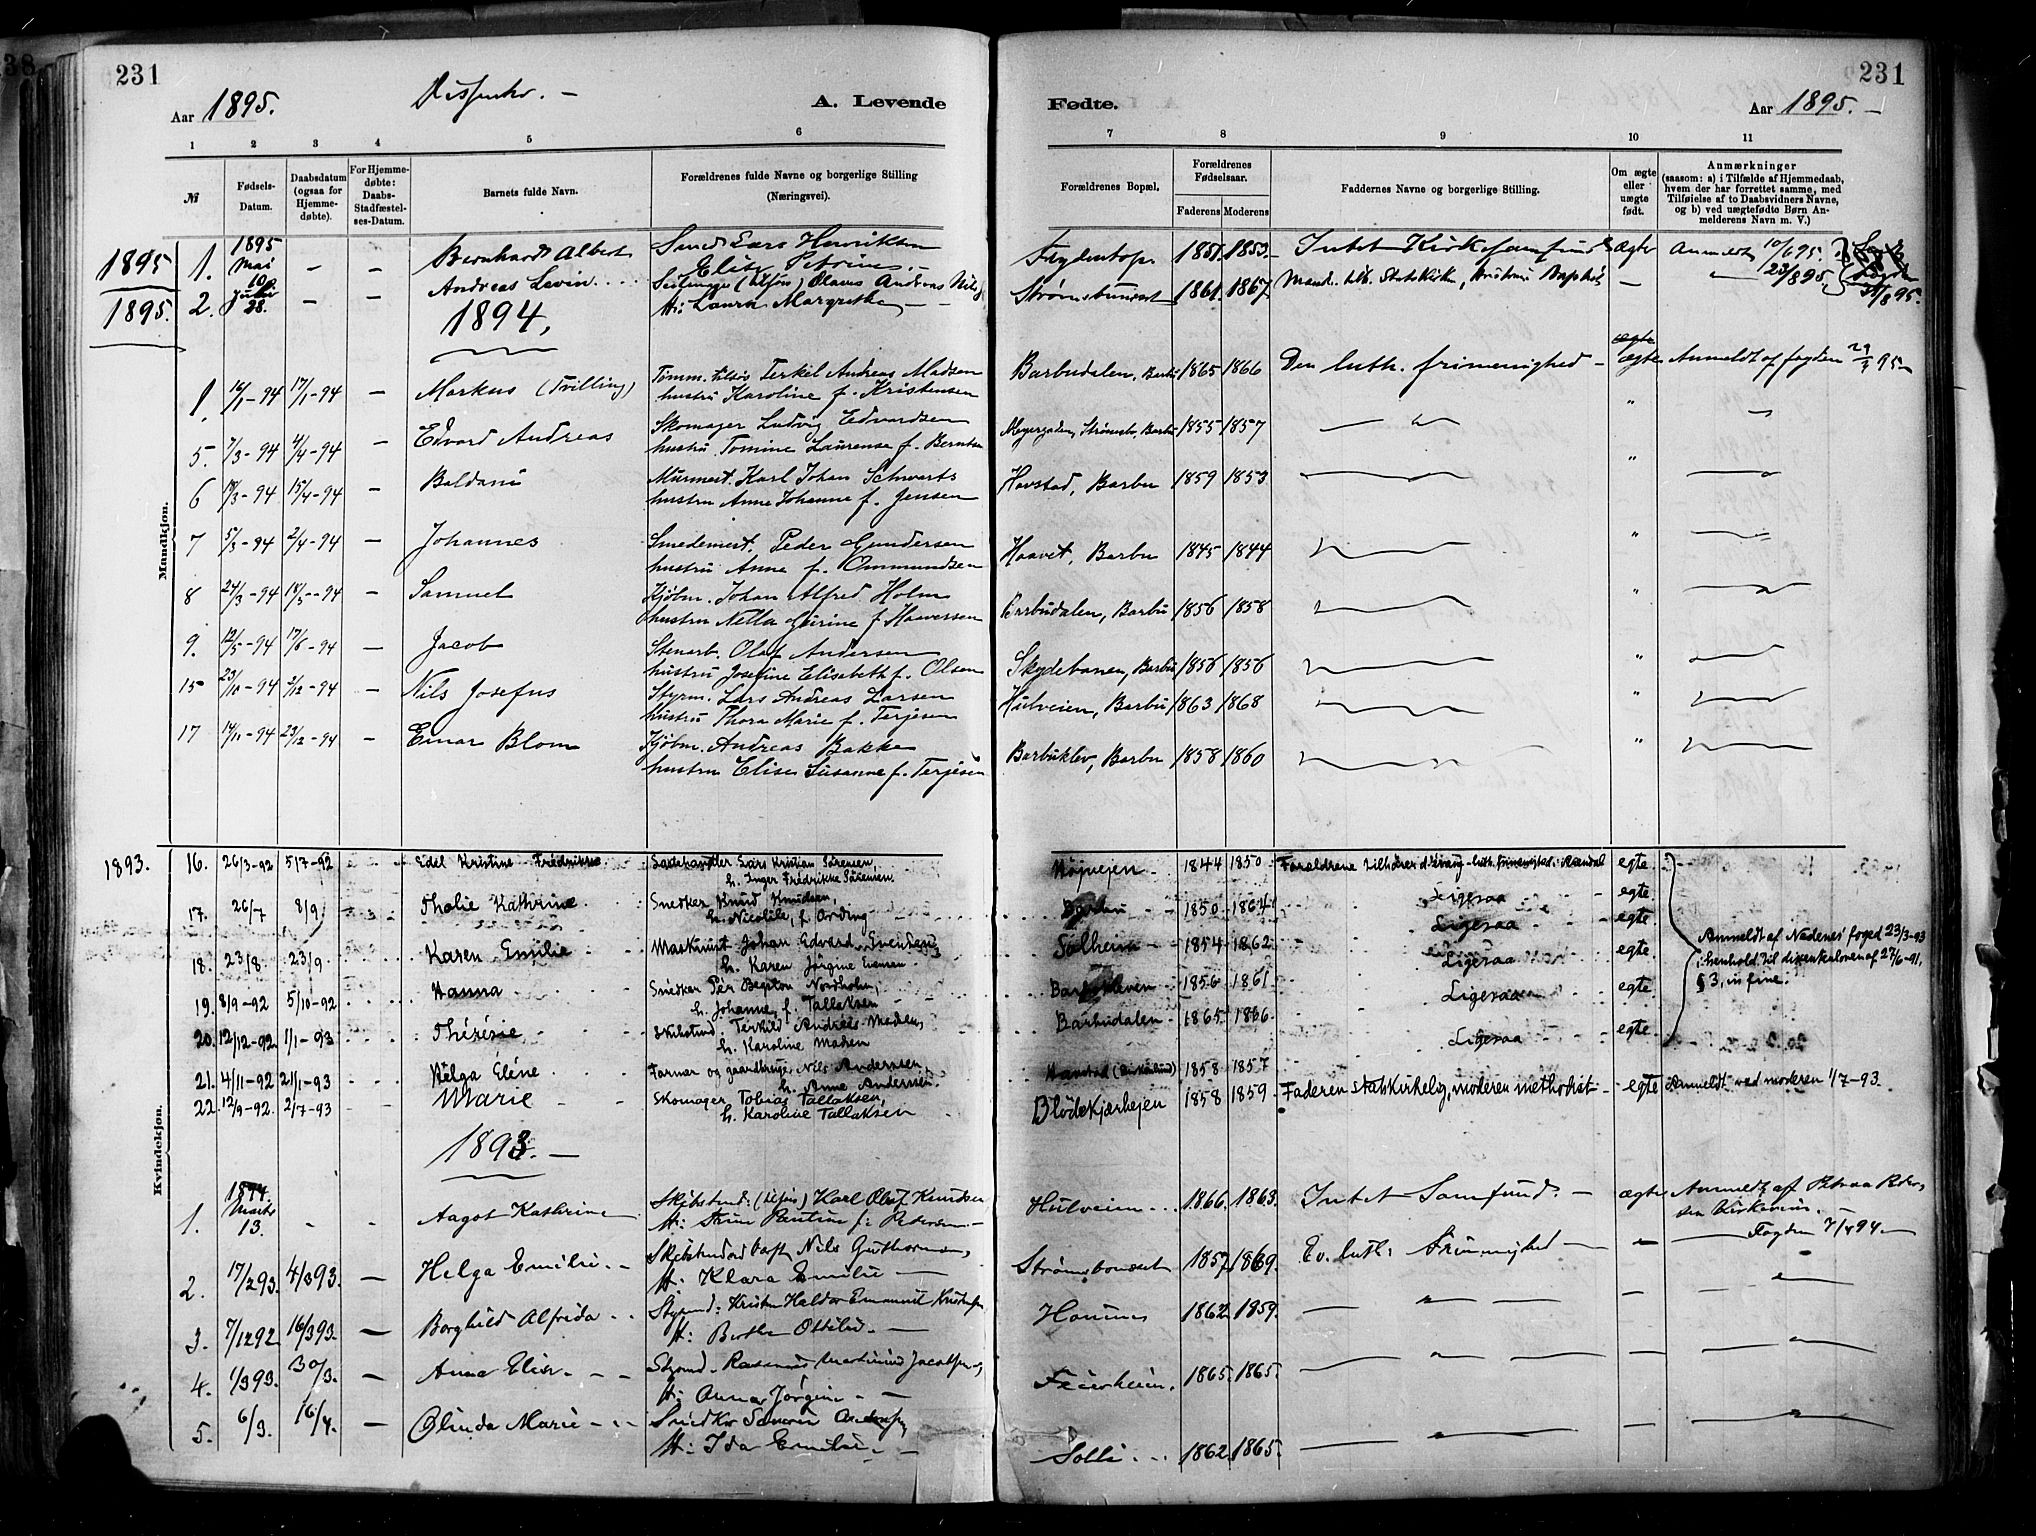 231
231
Aar 1895.
Dissenter. —
A. Levende
Fødte.
Aar 1895. —
1 2 3 4 5 6 7 8 9 10 11
№
Fødsels-Datum.
Daabsdatum (ogsaa for Hjemme-døbte).
For Hjemme-døbte: Daabs-Stadfæstel-ses-Datum.
Barnets fulde Navn.
Forældrenes fulde Navne og borgerlige Stilling (Næringsvei).
Forældrenes Bopæl.
Forældrenes Fødselsaar.
Faderens Moderens
Faddernes Navne og borgerlige Stilling.
Om ægte eller uægte født.
Anmærkninger
(saasom: a) i Tilfælde af Hjemmedaab, hvem der har forrettet samme, med Tilføielse af to Daabsvidners Navne, og b) ved uægtefødte Børn An-melderens Navn m. V.)
Mandkjøn.
1895 1. 1895 Mai 10. – – Bernhard Albert Smed Lars Henriksen 1851. 1853. Intet Kirkesamfund ægte Anmeldt 10/6 95.
Elise Petrine
1895. 2. Juli 28. – – Andreas Levin Olaus Andreas Nils Strømsbusset 1861. 1867. Mand. tilh. Statskirken, Baptist — 23/8 95.
H: Laura Margrethe
1894,
1. 16/1-94 17/1-94 – Markus (Tvilling) Tømm. Terkel Andreas Madsen Barbudalen, Barbu 1865 1866 Den luth. frimenighed ægte Anmeldt af fogden 95
hustru Karoline f. Kristensen
5. 7/3-94 4/4-94 – Edvard Andreas Skomager Ludvig Edvardsen Meyergaden, Strømsb., Barbu 1855 1857 — "
hustru Tomine Laurense f. Berntsen
6 18/3-94 15/4-94 – Baldani Murmest. Karl Johan Schwarts Havstad, Barbu 1859 1853 "
hustru Anne Johanne f. Jensen
7 5/3-94 2/4-94 – Johannes Smedemest. Peder Gundersen Haavet, Barbu 1845 1844 "
hustru Anne f. Ommundsen
8 24/3-94 18/5-94 – Samuel Kjøbm. Johan Alfred Holm Barbudalen, Barbu 1856 1858 "
hustru Nella Guirine f. Haaversen
9. 12/5-94 17/6-94 – Jacob Stenarb. Olaf Andersen Skydebanen, Barbu 1856 1856 "
hustru Josefine Elisabeth f. Olsen
15 23/10-94 2/12-94 – Nils Josefus Styrm. Lars Andreas Larsen Hulveien, Barbu 1863 1868 "
hustru Thora Marie f. Terjesen
17 14/11-94 23/12-94 – Einar Blom Kjøbm. Andreas Bakke Barbuklev, Barbu 1858 1860 "
hustru Elise Susanne f. Terjesen
Kvindekjøn.
1893. 16. 26/3-92 5/7-92 Edel Kristine Fredrikke Lars Kristian Sørensen, Højvejen 1844 1850 Forældrene tilhører d. evang-luth. frimenighed i Arendal egte
h. Inger Fredrikke Sørensen.
17. 26/7 8/9 Thalie Kathrine Snedker Knud Knudsen, Barbu 1850 1864 Ligesaa egte
h. Nicoline, f. Arding
18. 23/8. 23/9. Karen Emilie Maskinist Johan Edvard Evensen, Solheim 1854 1862 Ligesaa egte.
h. Karen Jørgine Evensen
19. 8/9-92 5/10-92 Hanna Snedker Per Begston Nordholm, Barbukleven 1856 1861 Ligesaa egte.
h. Johanne, f. Tallaksen
20. 12/12-92. 1/1-93 Thérésie Skibstmd. Terkild Andreas Madsen, Barbudalen 1865 1866 Ligesaa egte.
h. Karoline Madsen
Anmeldt af Nedenes foged 23/3-93 i henhold til dissenterloven af 27/6-91, § 3, in fine.
21. 4/11-92 21/1-93 Helga Eléne Farmer og gaardbruger Nils Andersen Havstad 1858 1857 Ligesaa egte.
h. Anne Andersen.
22. 12/9-92. 2/7-93 Marie Skomager Tobias Tallaksen, Blödekjærhejen 1858 1859 Faderen statskirkelig, moderen methodist egte Anmeldt ved moderen 1/7-93.
h. Karoline Tallaksen
1893. —
1. Marts 13. – – Aagot Kathrine Skibstmd: Karl Oluf Knudsen Hulveien 1866. 1863. Intet Samfund. — ægte Anmeldt af
H: Pauline f: Pedersen Fogden 7/4 94.
2. 17/2 93. 4/3 93. – Helga Emilie Nils Guthormsen, Strømsbusset 1857. 1869. Ev. luth: Frimenighed — "
H: Klara Emilie
3. 7/12 92 16/3 93. – Borghild Alfrida Styrmd: Kristen Haldor Emanuel 1862. 1859. — "
H: Berthe Ottilie
4. 1/3 93. 30/3. – Anna Elise Styrmd. Rasmus Martinius Jacobsen, Feierheien. 1865. 1865. —
H: Anna Jørgine
5. 6/3. 16/4. – Olinda Marie Snedker Andersen, Solli 1862. 1865. — "
H: Ida Emilie